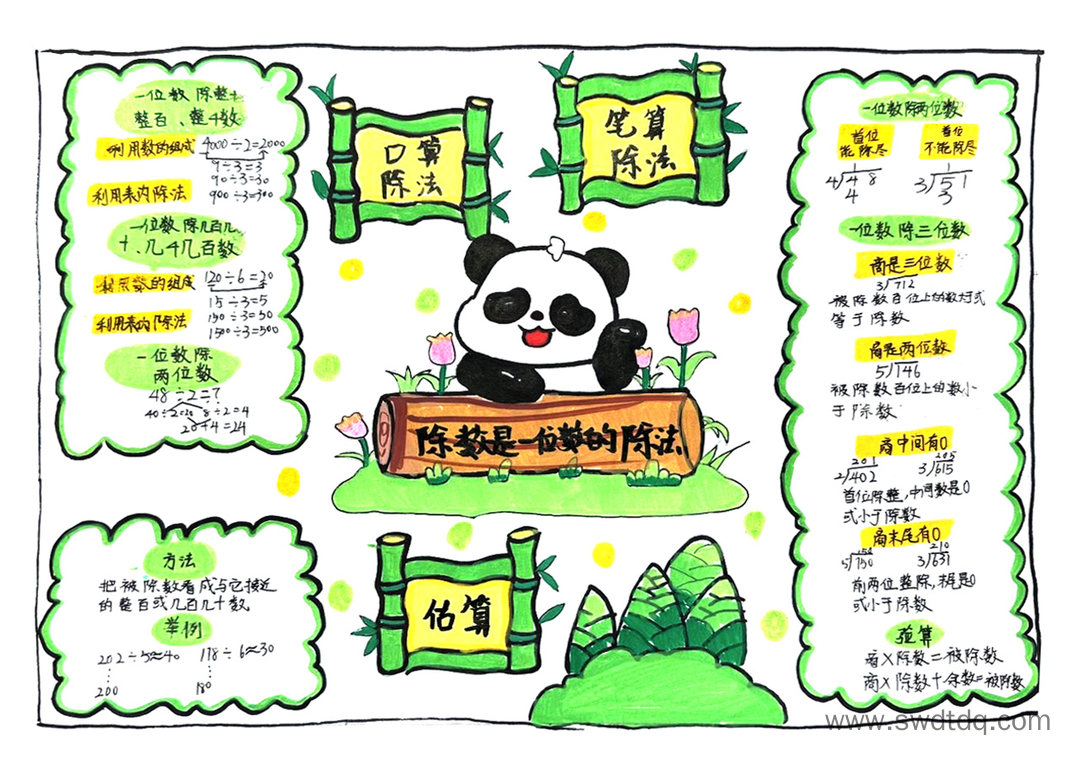 一位数除整十
整百、整千数
利用数的组成 4000÷2=2000
9÷3=3
90÷3=30
利用表内除法 900÷3=300
一位数除几百几
十、几千几百数
利用数的组成 120÷6=20
15÷3=5
利用表内除法 150÷3=50
1500÷3=500
一位数除
两位数
48÷2=?
40÷2=20 8÷2=4
20+4=24
口算
除法
笔算
除法
除数是一位数的除法
方法
把被除数看成与它接近
的整百或几百几十数。
举例
202÷5≈40 178÷6≈30
200 180
估算
一位数除两位数
首位
能除尽
首位
不能除尽
1
4 48
4
1
3 51
3
一位数除三位数
商是三位数
3 712
被除数百位上的数大于或
等于除数
商是两位数
5 146
被除数百位上的数小
于除数
商中间有0
201 205
2 402 3 615
首位除整,中间数是0
或小于除数
商末尾有0
150 210
5 750 3 631
前两位整除,末尾是0
或小于除数
验算
商×除数=被除数
商×除数+余数=被除数
www.swdtdq.com